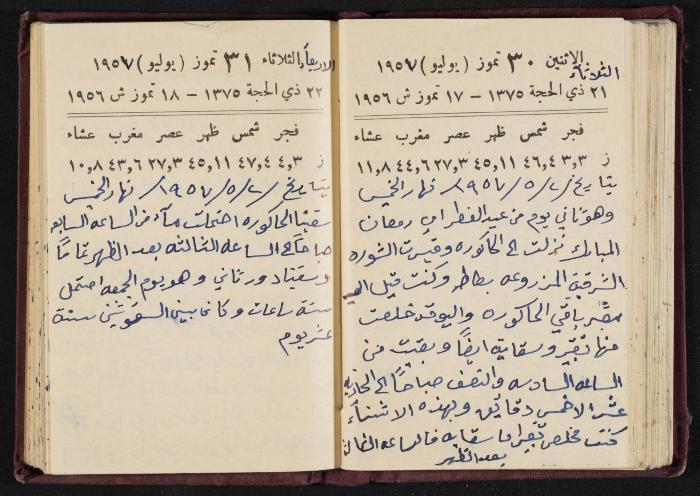 الاثنين ٣٠ تموز (يوليو) ١٩٥٧
الثلاثاء
٢١ ذي الحجة ١٣٧٥ – ١٧ تموز ش ١٩٥٦
فجر شمس ظهر عصر مغرب عشاء
ز ٣,٣ ٤٦,٤ ٤٥,١١ ٢٧,٣ ٤٤,٦ ١١,٨
بتاريخ ٢/٥/١٩٥٧/ نهار الخميس
وهو ثاني يوم من عيد الفطر ابن رمضان
المبارك نزلت الى الحاكوره وقبرت الشوره
الشرقية المزروعه بطاطر وكنت قبل
مقبر باقي الحاكوره واليو قد خلصت
منها تقبير وسقاية ايضاً وبقيت من
الساعه السادسه والنصف صباحاً الى الحاديه
عشر الا خمس دقائق وبهذه الاثناء
كنت مخلص تقبير اما سقايه فالساعه
بعد الظهر
الاربعاء الثلاثاء ٣١ تموز (يوليو) ١٩٥٧
٢٢ ذي الحجة ١٣٧٥ – ١٨ تموز ش ١٩٥٦
فجر شمس ظهر عصر مغرب عشاء
ز ٤,٣ ٤٧,٤ ٤٥,١١ ٢٧,٣ ٤٣,٦ ١٠,٨
بتاريخ ٢/٥/١٩٥٧/ نهار الخميس
سقينا الحاكوره احتملت مآء من الساعه السابعه
صباحاً الى الساعه الثالثه بعد الظهر تماماً
وسقيناد ور ثاني وهو يوم الجمعه احتمل
ستة ساعات وكان بيني السقوتين ستة
عشر يوم